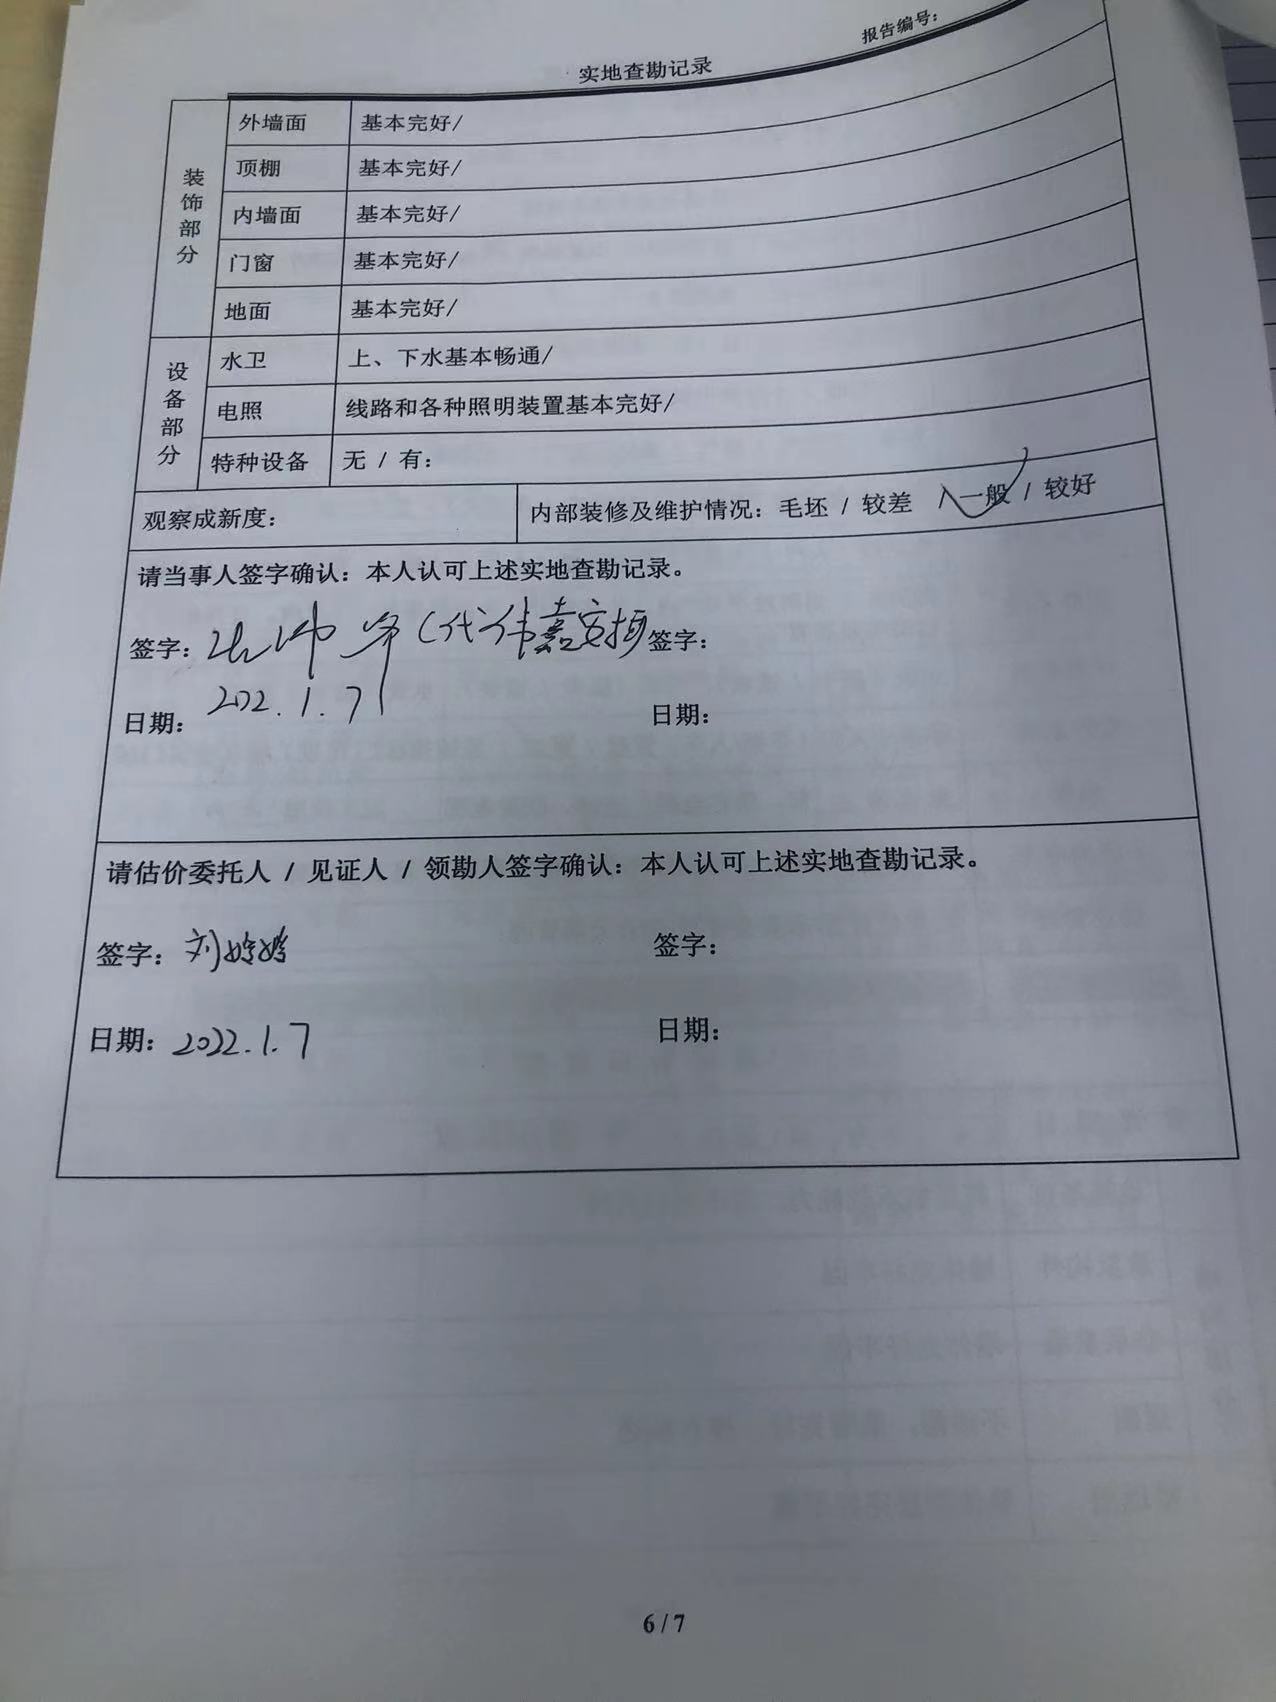 报告编号：
实地查勘记录
装饰部分
外墙面 基本完好/
顶棚 基本完好/
内墙面 基本完好/
门窗 基本完好/
地面 基本完好/
设备部分
水卫 上、下水基本畅通/
电照 线路和各种照明装置基本完好/
特种设备 无 / 有：
观察成新度： 内部装修及维护情况：毛坯 / 较差 / 一般 / 较好
请当事人签字确认：本人认可上述实地查勘记录。
签字： 签字：
日期： 202.1.7 日期：
请估价委托人 / 见证人 / 领勘人签字确认：本人认可上述实地查勘记录。
签字：刘婷婷 签字：
日期：2022.1.7 日期：
6 / 7